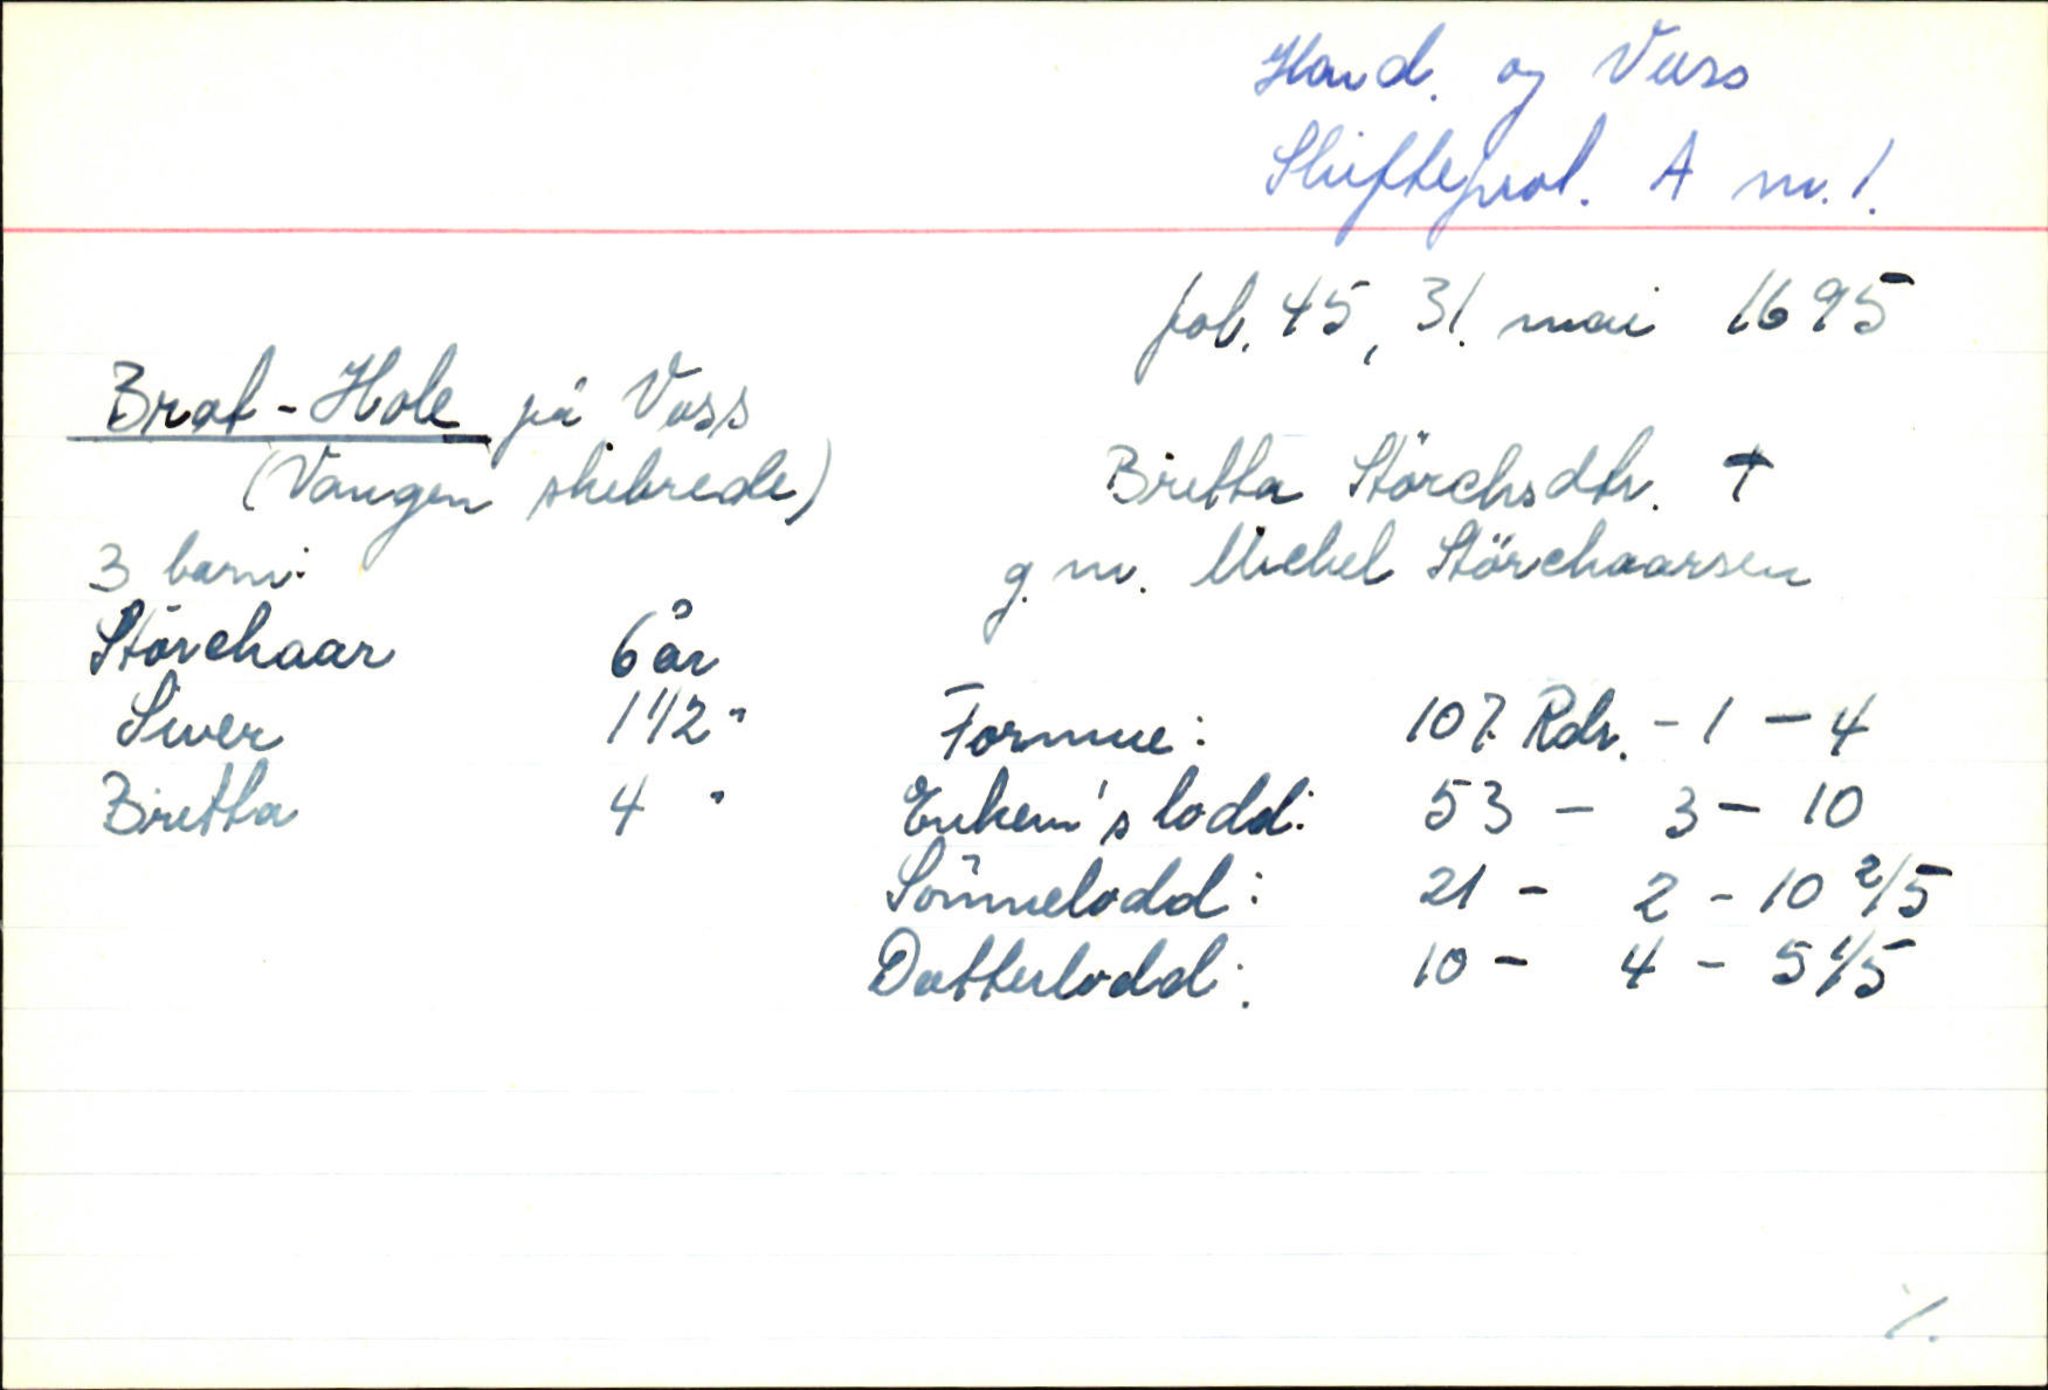 Hard. og Voss
Skifteprot. A nr. 1.
fol. 45, 31. mai 1695
Brat-Hole på Voss
(Vangen skibrede)
Britta Störchsdtr. †
g. m. Michel Störchaarsen
3 barn:
Störchaar 6 år
Siver 1 1/2 "
Britta 4 "
Formue: 107 Rdr. - 1 - 4
Enkem's lodd: 53 - 3 - 10
Sönnelodd: 21 - 2 - 10 2/5
Datterlodd: 10 - 4 - 5 1/5
./.